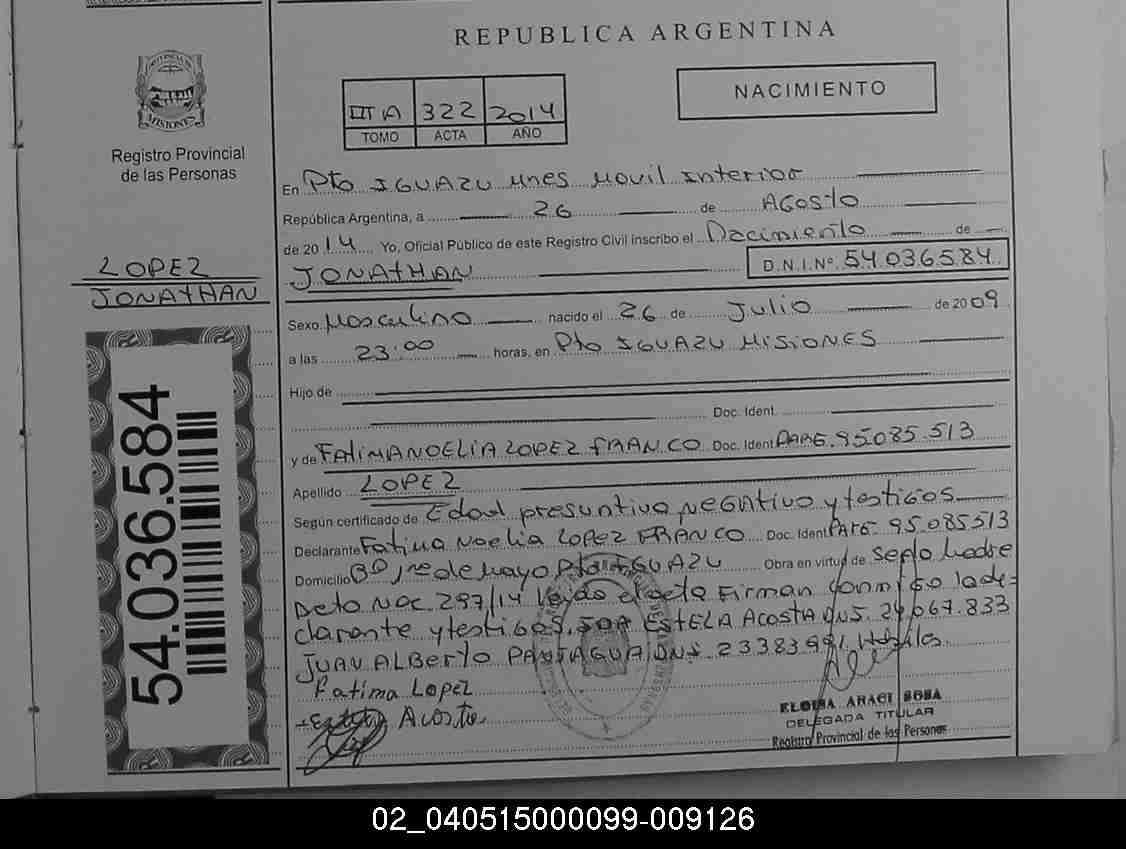 REPUBLICA ARGENTINA
PROVINCIA DE
MISIONES
Registro Provincial
de las Personas
III A 322 2014
TOMO ACTA AÑO
NACIMIENTO
En Pto IGUAZU MNES MOVIL Interior
República Argentina, a 26 de AGOSTO
de 2014 Yo, Oficial Público de este Registro Civil inscribo el Nacimiento de
JONATHAN D.N.I.Nº 54036584
LOPEZ
JONATHAN
54.036.584
Sexo Masculino nacido el 26 de Julio de 2009
a las 23:00 horas, en Pto IGUAZU MISIONES
Hijo de
Doc. Ident.
y de FATIMA NOELIA LOPEZ FRANCO Doc. Ident. 95085.513
Apellido LOPEZ
Según certificado de Edad presuntiva negativo y testigos
Declarante Fatima Noelia LOPEZ FRANCO Doc. Ident. 95.085513
Domicilio Bº 1ro de Mayo Pto IGUAZU Obra en virtud de Septo Madre
Dcto Nac 297/14 Leída el acta Firman conmigo la de=
clarante y testigos. ESTELA ACOSTA DNI. 24.067.833
JUAN ALBERTO PANIAGUA DNI 23383991 Hábiles.
Fatima Lopez
Acosta
ELOISA ARACI SOSA
DELEGADA TITULAR
Registro Provincial de las Personas
02_040515000099-009126